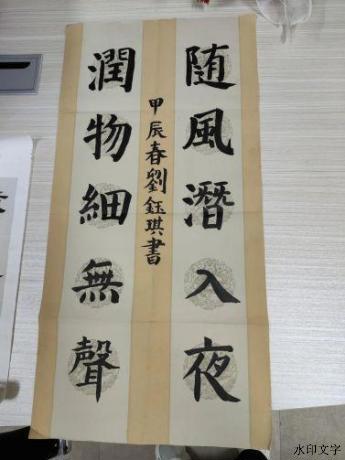 随風潛入夜
潤物細無聲
甲辰春劉鈺琪書
水印文字